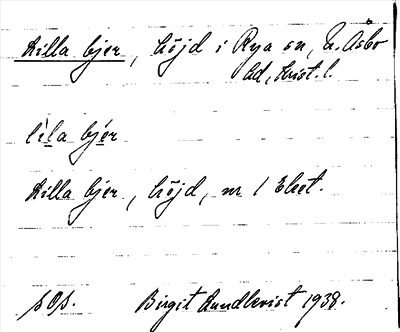 Lilla bjer, höjd i Rya sn, N. Åsbo
hd, Krist. l.
lìla bjér
Lilla bjer, höjd, nr 1 Eket.
SOS. Birgit Lundkvist 1938.